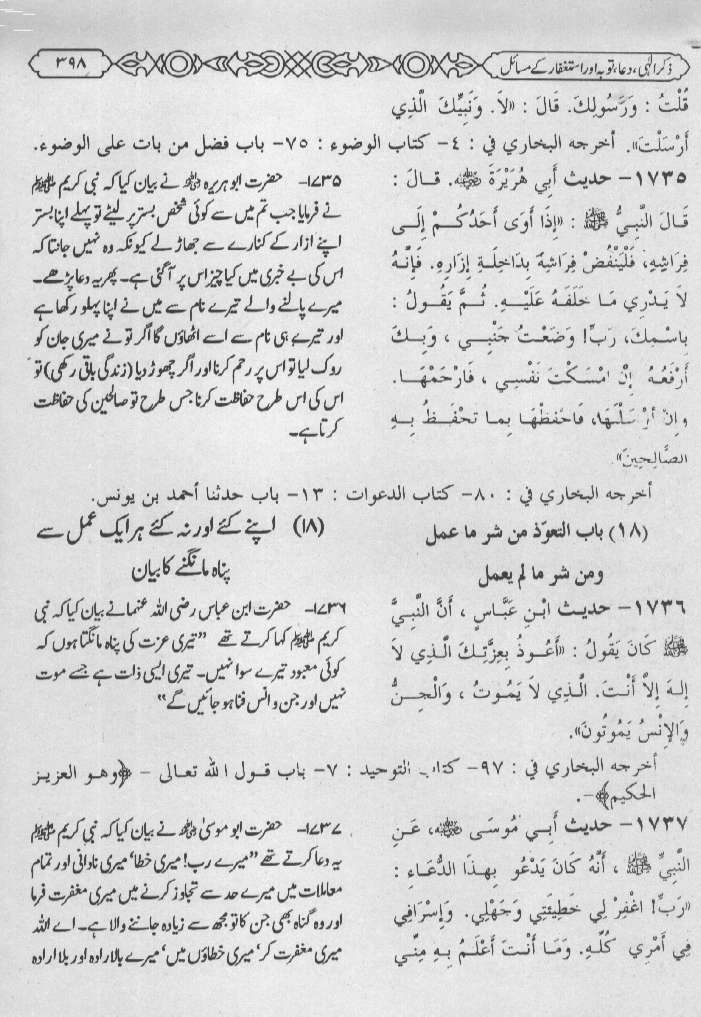 ذکر الٰہی، دعا، توبہ اور استغفار کے مسائل
۳۹۸
قُلْتُ : وَرَسُولِكَ. قَالَ : «لَا. وَنَبِيِّكَ الَّذِي
أَرْسَلْتَ». أخرجه البخاري في : ٤- كتاب الوضوء : ٧٥- باب فضل من بات على الوضوء.
١٧٣٥- حديث أَبِي هُرَيْرَةَ رضي الله عنه. قَالَ :
قَالَ النَّبِيُّ ﷺ : «إِذَا أَوَى أَحَدُكُمْ إِلَى
فِرَاشِهِ، فَلْيَنْفُضْ فِرَاشَهُ بِدَاخِلَةِ إِزَارِهِ. فَإِنَّهُ
لَا يَدْرِي مَا خَلَفَهُ عَلَيْهِ. ثُمَّ يَقُولُ :
بِاسْمِكَ، رَبِّ! وَضَعْتُ جَنْبِي ، وَبِكَ
أَرْفَعُهُ إِنْ امْسَكْتَ نَفْسِي ، فَارْحَمْهَا.
وَإِنْ أَرْسَلْتَهَا، فَاحْفَظْهَا بِمَا تَحْفَظُ بِهِ
الصَّالِحِينَ».
۱۷۳۵- حضرت ابو ہریرہ رضی اللہ عنہ نے بیان کیا کہ نبی کریم ﷺ
نے فرمایا جب تم میں سے کوئی شخص بستر پر لیٹے تو پہلے اپنا بستر
اپنے ازار کے کنارے سے جھاڑ لے کیونکہ وہ نہیں جانتا کہ
اس کی بے خبری میں کیا چیز اس پر آ گئی ہے۔ پھر یہ دعا پڑھے۔
میرے پالنے والے تیرے نام سے میں نے اپنا پہلو رکھا ہے
اور تیرے ہی نام سے اسے اٹھاؤں گا اگر تو نے میری جان کو
روک لیا تو اس پر رحم کرنا اور اگر چھوڑ دیا (زندگی باقی رکھی) تو
اس کی اس طرح حفاظت کرنا جس طرح تو صالحین کی حفاظت
کرتا ہے۔
أخرجه البخاري في : ٨٠- كتاب الدعوات : ١٣- باب حدثنا أحمد بن يونس.
(١٨) باب التعوّذ من شر ما عمل
ومن شر ما لم يعمل
(۱۸) اپنے کئے اور نہ کئے ہر ایک عمل سے
پناہ مانگنے کا بیان
١٧٣٦- حديث ابْنِ عَبَّاسٍ ، أَنَّ النَّبِيَّ
ﷺ كَانَ يَقُولُ : «أَعُوذُ بِعِزَّتِكَ الَّذِي لَا
إِلهَ إِلَّا أَنْتَ. الَّذِي لَا يَمُوتُ ، وَالْجِنُّ
وَالْإِنْسُ يَمُوتُونَ».
۱۷۳۶- حضرت ابن عباس رضی اللہ عنہما نے بیان کیا کہ نبی
کریم ﷺ کہا کرتے تھے ”تیری عزت کی پناہ مانگتا ہوں کہ
کوئی معبود تیرے سوا نہیں۔ تیری ایسی ذات ہے جسے موت
نہیں اور جن و انس فنا ہو جائیں گے“
أخرجه البخاري في : ٩٧- كتاب التوحيد : ٧- باب قول الله تعالى - ﴿وهو العزيز
الحكيم﴾-.
١٧٣٧- حديث أَبِي مُوسَى رضي الله عنه، عَنِ
النَّبِيِّ ﷺ ، أَنَّهُ كَانَ يَدْعُو بِهذَا الدُّعَاءِ :
«رَبِّ! اغْفِرْ لِي خَطِيئَتِي وَجَهْلِي. وَإِسْرَافِي
فِي أَمْرِي كُلِّهِ. وَمَا أَنْتَ أَعْلَمُ بِهِ مِنِّي
۱۷۳۷- حضرت ابو موسیٰ رضی اللہ عنہ نے بیان کیا کہ نبی کریم ﷺ
یہ دعا کرتے تھے ”میرے رب! میری خطا‘ میری نادانی اور تمام
معاملات میں میرے حد سے تجاوز کرنے میں میری مغفرت فرما
اور وہ گناہ بھی جن کا تو مجھ سے زیادہ جاننے والا ہے۔ اے اللہ
میری مغفرت کر‘ میری خطاؤں میں‘ میرے بالارادہ اور بلا ارادہ